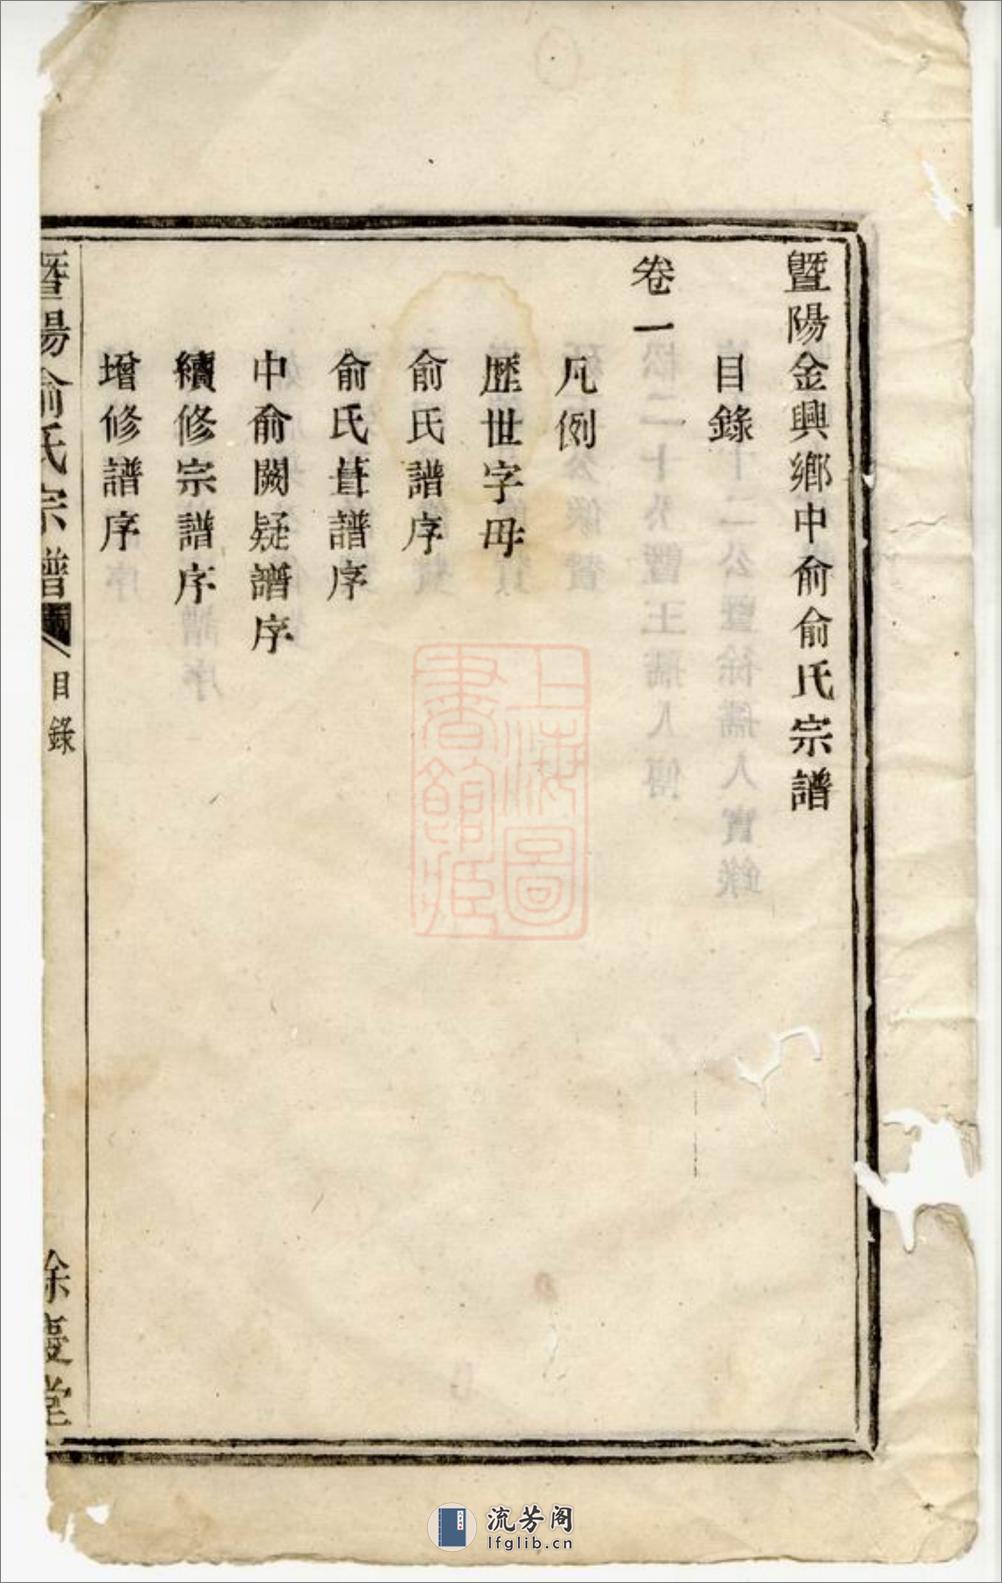 暨陽金興鄉中俞俞氏宗譜
目錄
卷一
凡例
歷世字母
俞氏譜序
俞氏葺譜序
中俞闕疑譜序
續修宗譜序
增修譜序
暨陽俞氏宗譜
目錄
餘慶堂
上海圖書館藏
流芳阁
lfglib.cn